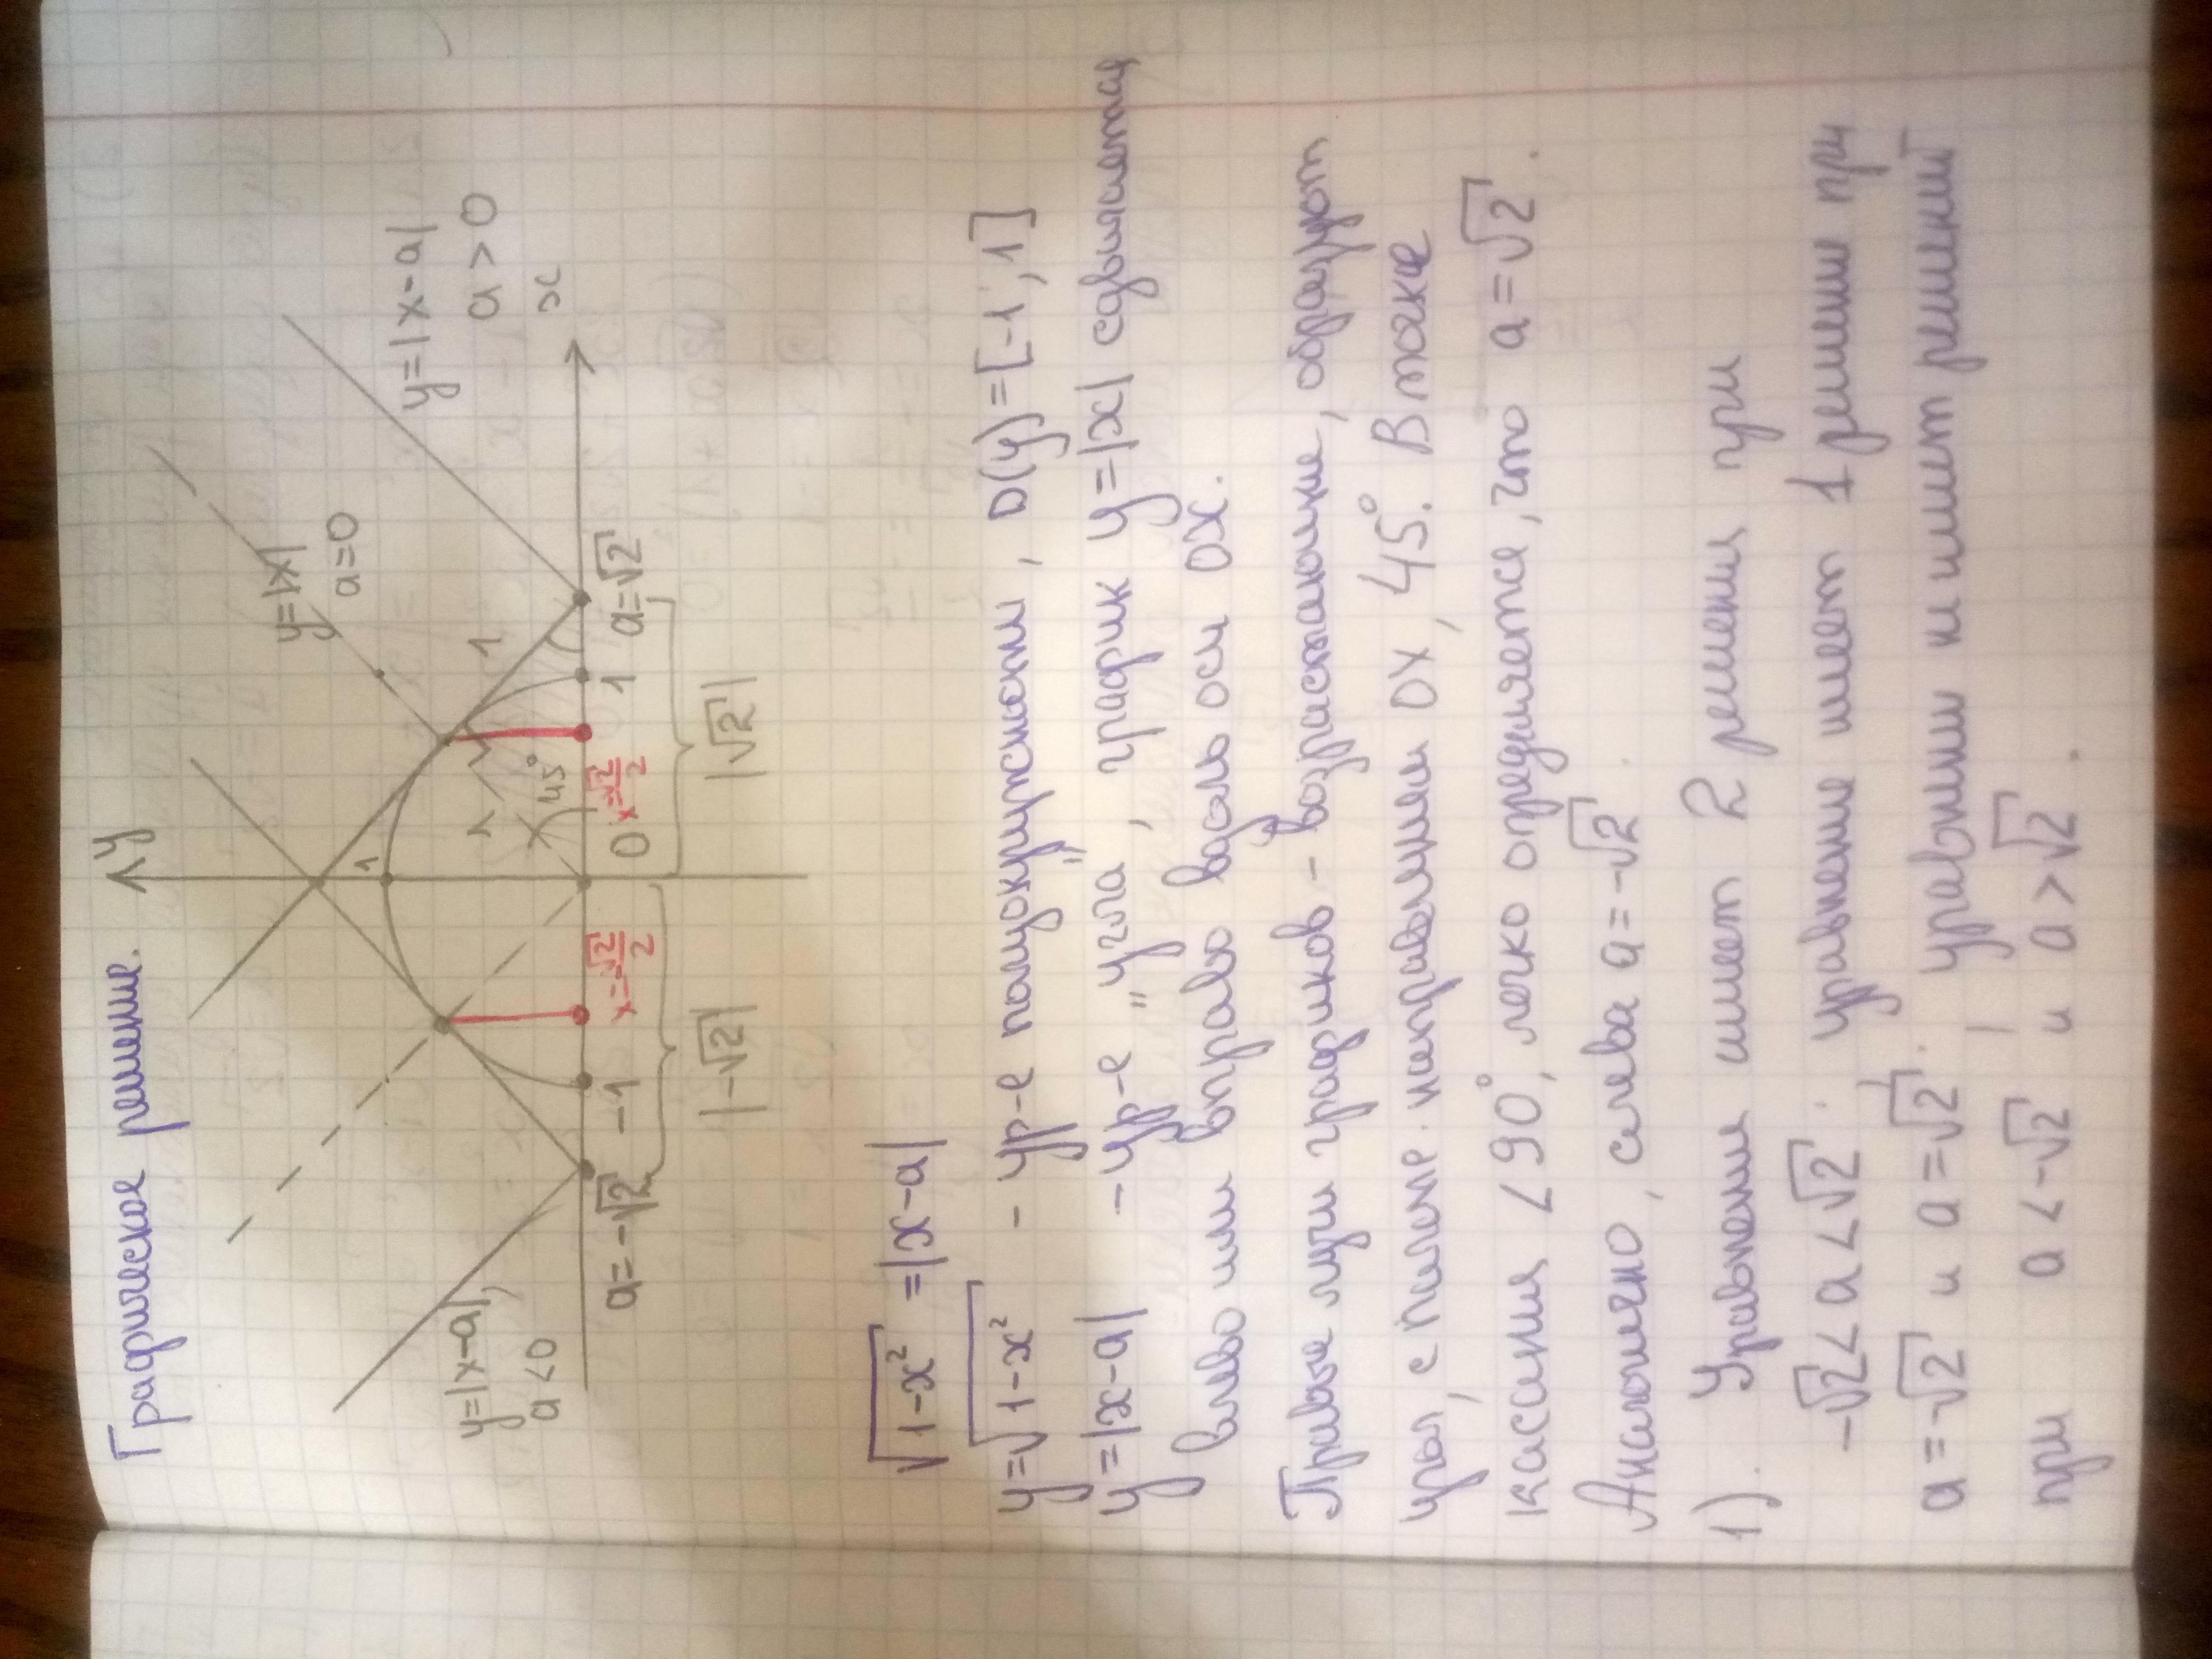 Графическое решение.
y
y=|x|
a=0
y=|x-a|
a>0
x
y=|x-a|,
a<0
1
1
1
45°
a=-√2
-1
x=-√2/2
0
x=√2/2
1
a=√2
|-√2|
|√2|
√1-x² = |x-a|
y=√1-x² - ур-е полуокружности, D(y)=[-1; 1]
y=|x-a| - ур-е "угла", график y=|x| сдвигается
влево или вправо вдоль оси OX.
Правые лучи графиков - возрастающие, образуют
угол, с полож. направлением OX, 45°. В точке
касания ∠90°, легко определяется, что a=√2.
Аналогично, слева a=-√2.
1). Уравнение имеет 2 решения при
-√2<a<√2. Уравнение имеет 1 решение при
a=-√2 и a=√2. Уравнение не имеет решений
при a<-√2 и a>√2.